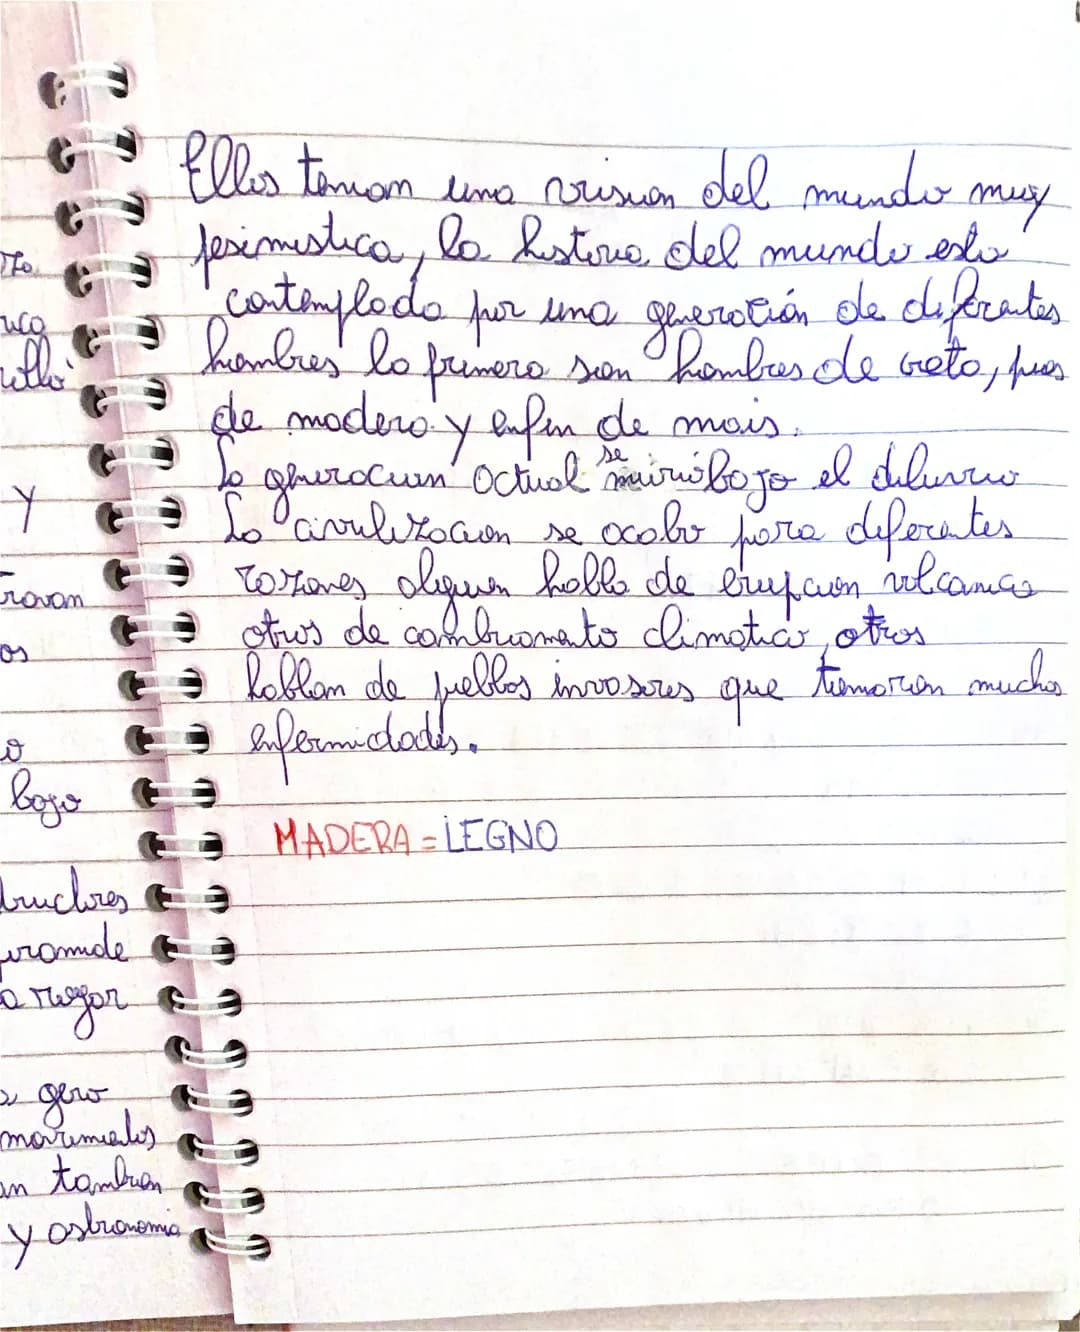 Ellos tenian una vision del mundo muy
pesimistica, la historia del mundo esta
contemplada por una generación de diferentes
hombres la primera son hombres de creta, pues
de madera y enfin de mais.
La generacion actual se murió bajo el diluvio
La civilizacion se acabo para diferentes
razones alguien habla de erupcion volcanica
otros de cambiamento climatico, otros
hablan de pueblos invasores que tiemarion muchas
enfermidades.
MADERA = LEGNO
uco
y
os
o
bajo
a regar
movimientos
an tambien
y astronomia